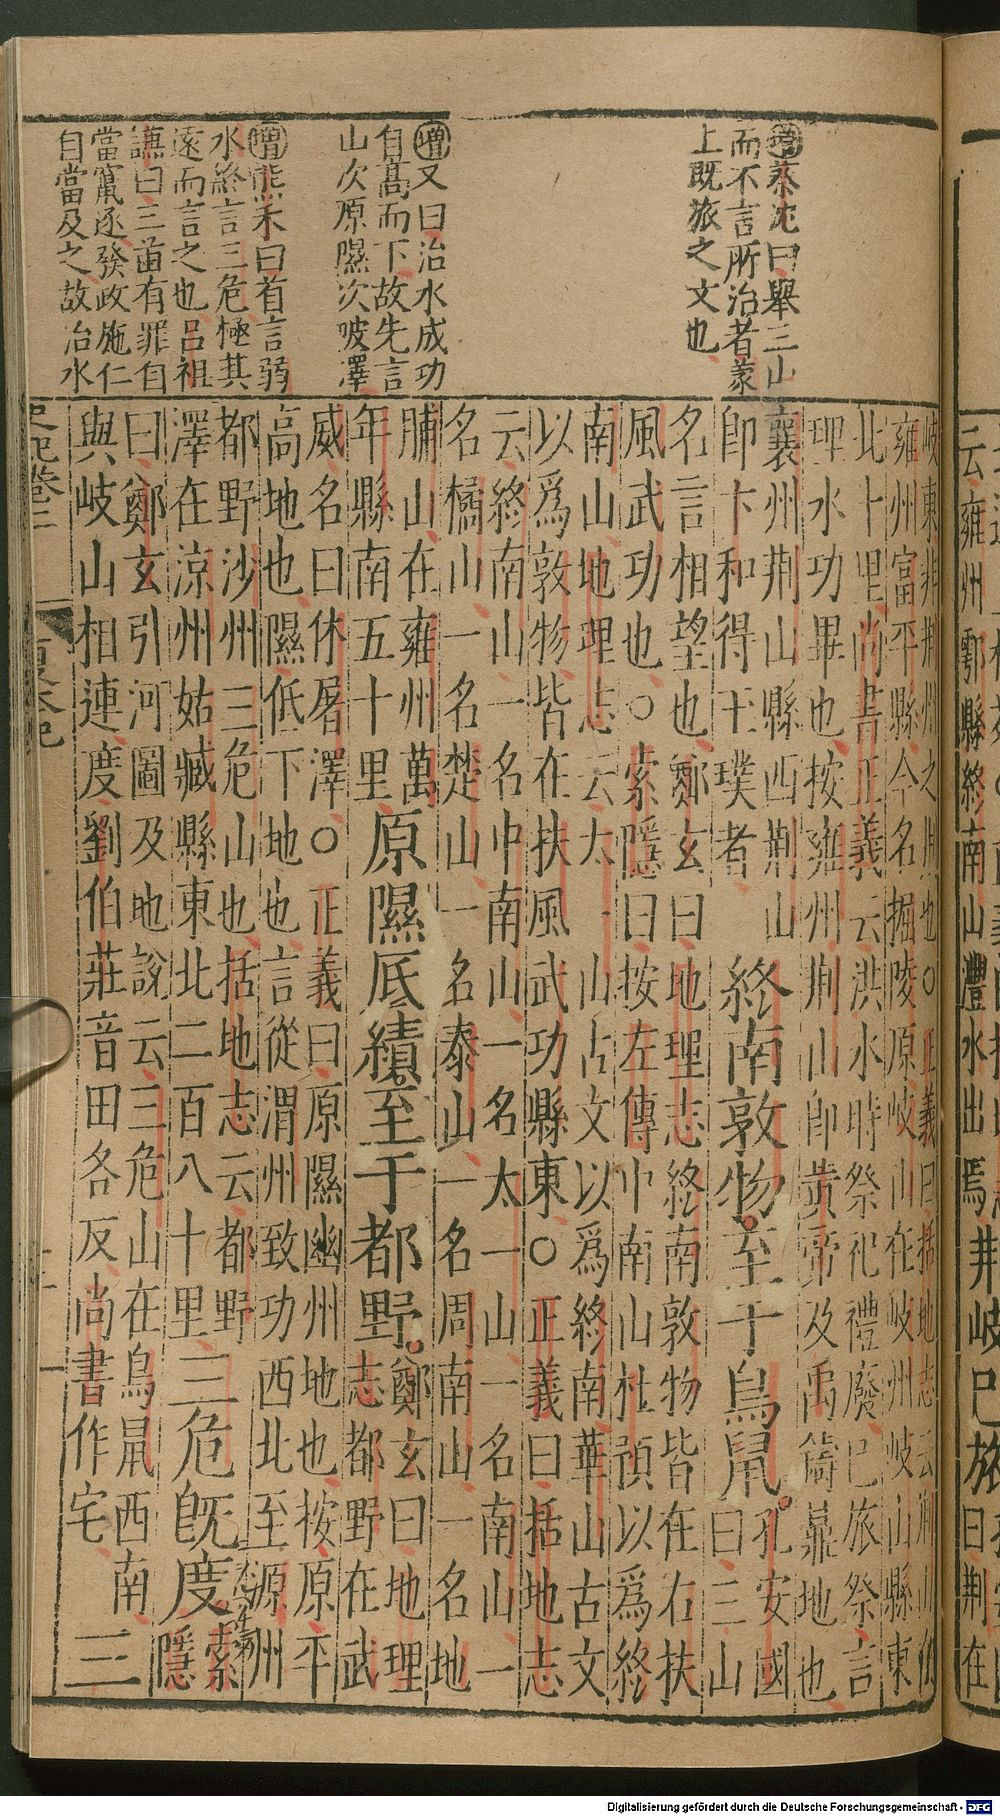 增蔡沈曰舉三山
而不言所治者蒙
上既旅之文也
增又曰治水成功
自高而下故先言
山次原隰次陂澤
增熊禾曰首言弱
水終言三危極其
遠而言之也呂祖
謙曰三苗有罪自
當竄逐發政施仁
自當及之故治水
岐東非荊州之荊也○正義曰括地志云荊山在
雍州富平縣今名掘陵原岐山在岐州岐山縣東
北十里尚書正義云洪水時祭祀禮廢已旅祭言
理水功畢也按雍州荊山即黃帝及禹鑄鼎地也
襄州荊山縣西荊山
即卞和得玉璞者
終南敦物至于鳥鼠
孔安國
曰三山
名言相望也鄭玄曰地理志終南敦物皆在右扶
風武功也○索隱曰按左傳中南山杜預以為終
南山地理志云太一山古文以為終南華山古文
以為敦物皆在扶風武功縣東○正義曰括地志
云終南山一名中南山一名太一山一名南山一
名橘山一名楚山一名泰山一名周南山一名地
脯山在雍州萬
年縣南五十里
原隰厎績至于都野
鄭玄曰地理
志都野在武
威名曰休屠澤○正義曰原隰幽州地也按原平
高地也隰低下地也言從渭州致功西北至源州
都野沙州三危山也括地志云都野
澤在涼州姑臧縣東北二百八十里
三危既度
索
隱
曰鄭玄引河圖及地說云三危山在鳥鼠西南
與岐山相連度劉伯莊音田各反尚書作宅
三
史記卷二
夏本紀
云雍州鄠縣終南山灃水出焉
荊岐已旅
曰荊在
Digitalisierung gefördert durch die Deutsche Forschungsgemeinschaft - DFG